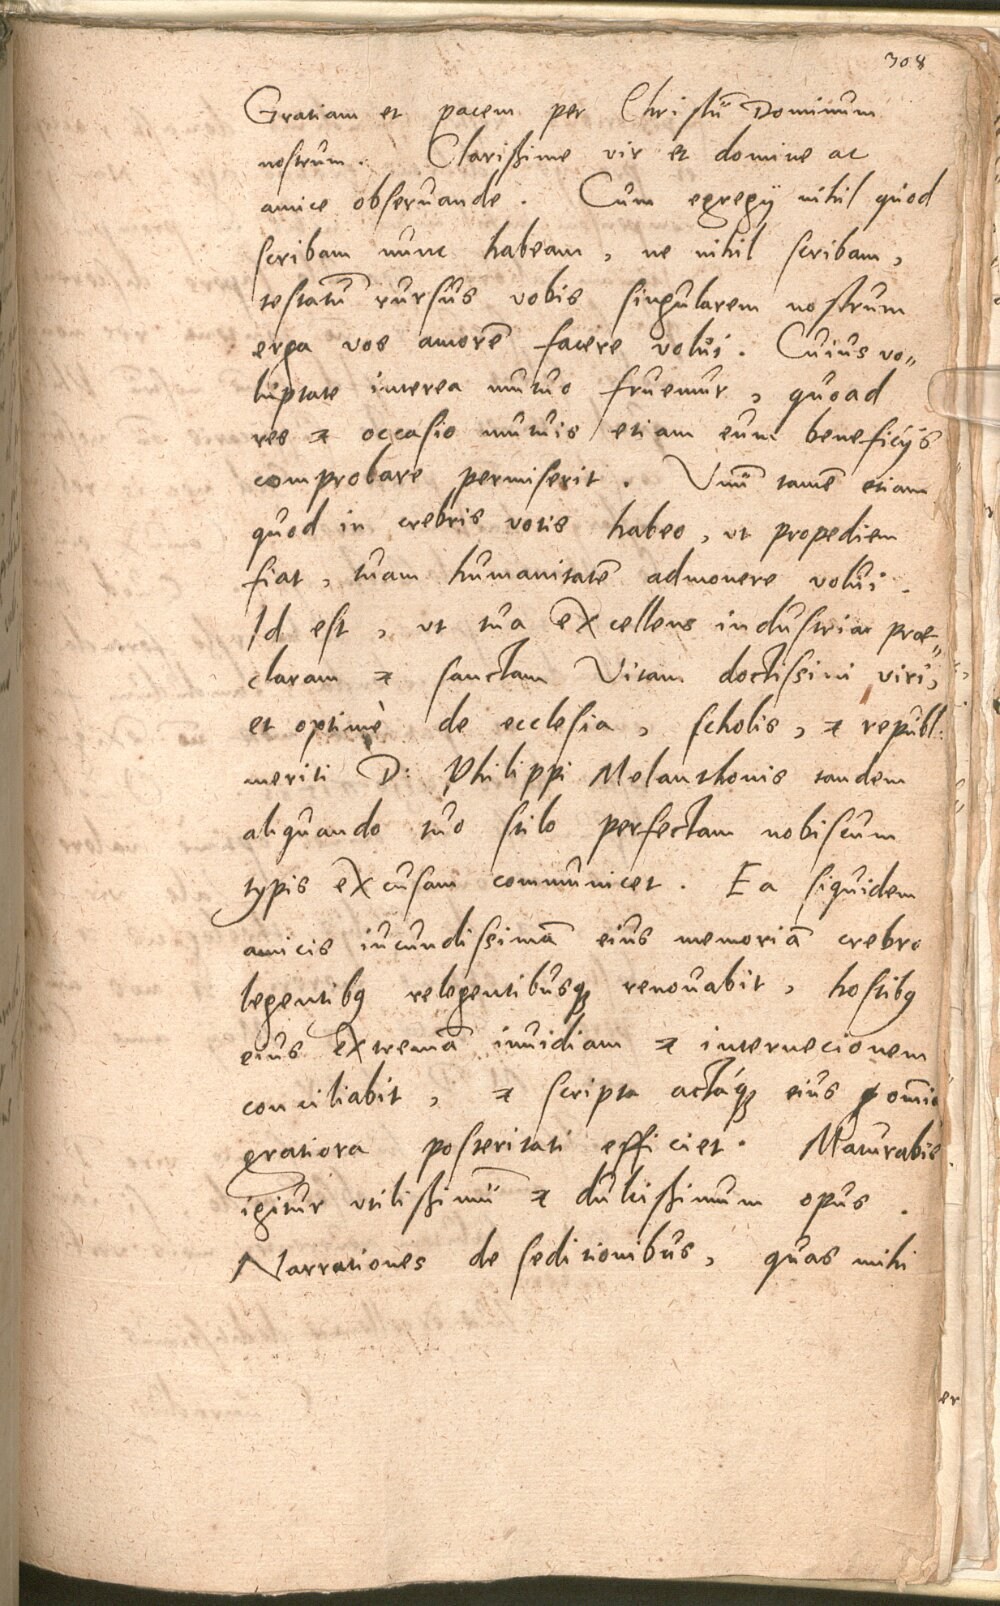 308
Gratiam et pacem per Christū Dominum
nostrum. Clarißime vir et domine ac
amice obseruande. Cum egregij nihil quod
scribam nunc habeam, ne nihil scribam,
testatū rursus vobis singularem nostrum
erga vos amorē facere volui. Cuius vo„
luptate interea mutuo fruemur, quoad
res & occasio mutuis etiam eum beneficijs
comprobare permiserit. Vnū tamē etiam
quod in crebris votis habeo, vt propediem
fiat, tuam humanitatē admonere volui.
Id est, vt tua excellens industria præ„
claram & sanctam Vitam doctissimi viri,
et optimè de ecclesia, scholis, & republ:
meriti D: Philippi Melanthonis tandem
aliquando tuo stilo perfectam nobiscum
typis excusam communicet. Ea siquidem
amicis iucundissimā eius memoriā crebro
legentibꝫ relegentibusqꝫ renouabit, hostibꝫ
eius extremā inuidiam & internecionem
conciliabit, & scripta actáqꝫ eius omīa
gratiora posteritati efficiet. Maturabis
igitur vtilißimū & dulcißimum opus.
Narrationes de seditionibus, quas mihi
er